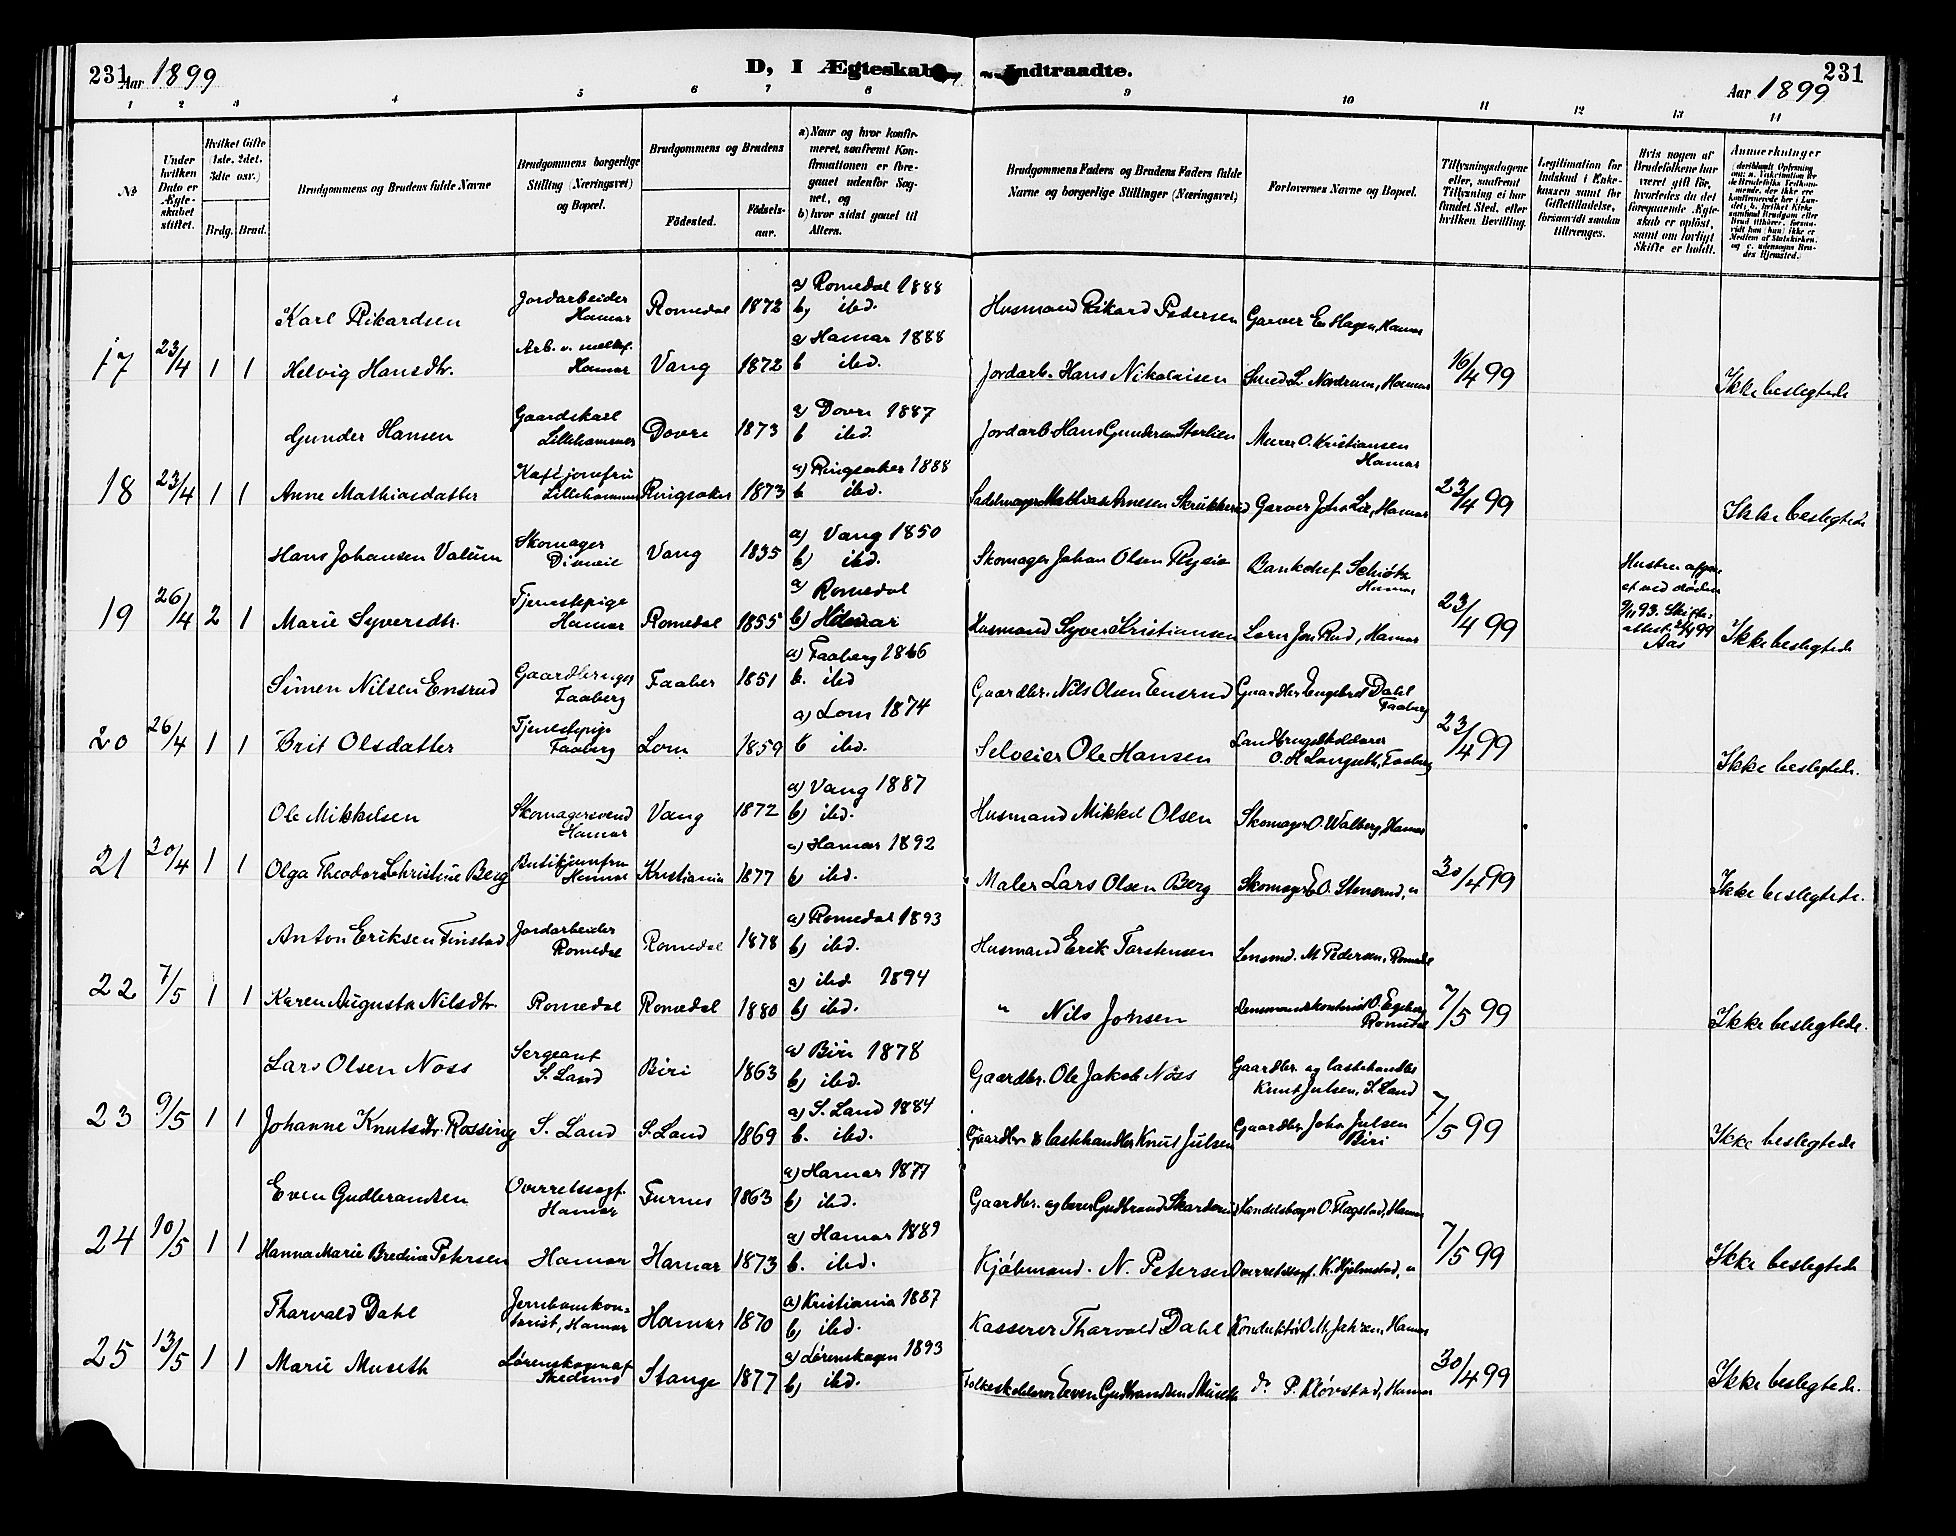 231 Aar 1899 D, I Ægteskab Indtraadte. Aar 1899 231
1 2 3 4 5 6 7 8 9 10 11 12 13 14
No
Under hvilken Dato er Ægteskabet stiftet.
Hvilket Gifte (1ste, 2det, 3die osv.)
Brdg. Brud.
Brudgommens og Brudens fulde Navne
Brudgommens borgerlige Stilling (Næringsvei) og Bopæl.
Brudgommens og Brudens
Födested. Födselsaar.
a) Naar og hvor konfirmeret, saafremt Konfirmationen er foregaaet udenfor Sognet, og
b) hvor sidst gaaet til Alters.
Brudgommens Faders og Brudens Faders fulde Navne og borgerlige Stillinger (Næringsvei)
Forlovernes Navne og Bopæl.
Tillysningsdagene eller, saafremt Tillysning ei har fundet Sted, efter hvilken Bevilling.
Legitimation for Indskud i Enkekassen samt for Giftetilladelse, forsaavidt saadan tiltrænges.
Hvis nogen af Brudefolkene har været gift før, hvorledes da det foregaaende Ægteskab er opløst, samt om lovligt Skifte er holdt.
Anmærkninger
Karl Rikardsen Jordarbeider Hamar Romedal 1872 a) Romedal 1888 b) ibd. Husmand Rikard Pedersen Garver E. Hagen, Hamar
17 23/4 1 1 Helvig Hansdtr. Arb. v. Hamar Vang 1872 a Hamar 1888 b ibd. Jordarb. Hans Nikolaisen Smed L. Nordrum, Hamar 16/4 99 Ikke beslegtede
Gunder Hansen Gaardskarl Lillehammer Dovre 1873 a) Dovre 1887 b ibd. Jordarb. Hans Gundersen Murer O. Kristiansen Hamar
18 23/4 1 1 Anne Mathiasdatter Kaféjomfru Lillehammer Ringsaker 1873 a) Ringsaker 1888 b ibd. Sadelmager Mathias Arnesen Garver Johs Lie, Hamar 23/4 99 Ikke beslegtede
Hans Johansen Valum Skomager Vang 1835 a) Vang 1850 b) ibd. Skomager Johan Olsen Bankchef Schiøtz Hamar
19 26/4 2 1 Marie Syversdtr. Tjenestepige Hamar Romedal 1855 a) Romedal b) Hamar Husmand Syver Kristiansen Jon Rud, Hamar 23/4 99 Hustru afgaaet ved døden 93. Skifteattest 99 Aas Ikke beslegtede
Simen Nilsen Ensrud Gaardbruger Faaberg Faaber 1851 a) Faaberg 1866 b. ibd Gaardbr. Nils Olsen Ensrud Gaardbr. Engebret Dahl Faaberg
20 26/4 1 1 Brit Olsdatter Tjenestepige Faaberg Lom 1859 a) Lom 1874 b ibd. Selveier Ole Hansen O. H. Langseth, Faaberg 23/4 99 Ikke beslegtede.
Ole Mikkelsen Skomagersvend Hamar Vang 1872 a) Vang 1887 b) ibd. Husmand Mikkel Olsen Skomager O. Walberg, Hamar
21 30/4 1 1 Olga Theodora Christine Berg Butikjomfru Hamar Kristiania 1877 a) Hamar 1892 b) ibd. Maler Lars Olsen Berg Skomager E. O. Stensrud, " 30/4 99 Ikke beslegtede.
Anton Eriksen Finstad Jordarbeider Romedal Romedal 1878 a) Romedal 1893 b) ibd. Husmand Erik Torstensen Lensmd. M. Pedersen, Romedal
22 7/5 1 1 Karen Augusta Nilsdtr. Romedal Romedal 1880 a) ibd. 1894 b) ibd. " Nils Jonsen Lensmandskontorist O. Egeberg Romedal 7/5 99 Ikke beslegtede.
Lars Olsen Noss Sergeant S. Land Biri 1863 a) Biri 1878 b) ibd. Gaardbr. Ole Jakob Nöss Gaardbr. og lasthandler Knut Julsen, S. Land
23 9/5 1 1 Johanne Knutsdtr. Rossing S. Land S. Land 1869 a) S. Land 1884 b. ibd. Gaardbr. & lasthandler Knut Julsen Gaardbr. Johs Julsen Biri 7/5 99 Ikke beslegtede
Even Gudbrandsen Overretssagf. Hamar Furnes 1863 a) Hamar 1877 b) ibd. Gaardbr. og lærer Gudbrand Skarderud Handelsborger O. Flagstad, Hamar
24 10/5 1 1 Hanna Marie Bredine Petersen Hamar Hamar 1873 a) Hamar 1889 b. ibd. Kjøbmand. N. Petersen Overretssagf. K. Hjelmstad, " 7/5 99 Ikke beslegtede
Tharvald Dahl Jernbanekontorist, Hamar Hamar 1870 a) Kristiania 1887 b) ibd. Kasserer Tharvald Dahl Konduktør O. M. Jahren, Hamar
25 13/5 1 1 Marie Museth Lørenskogen af Skedsmo Stange 1877 a) Lørenskogen 1893 b) ibd. Folkeskolelærer Even Gudbrandsen Museth do P. Kløvstad, Hamar 30/4 99 Ikke beslegtede.